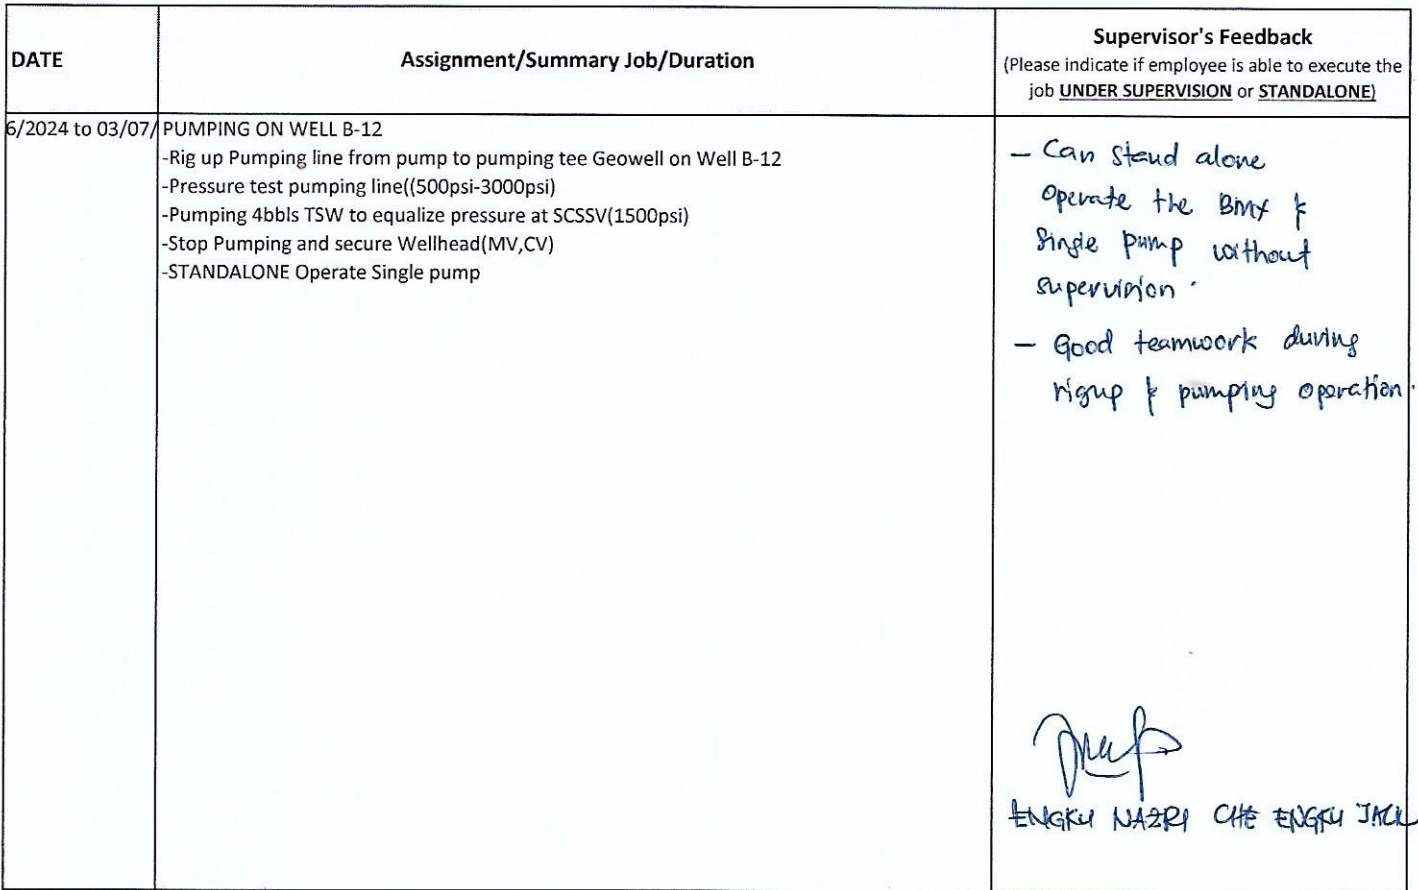 DATE
Assignment/Summary Job/Duration
Supervisor's Feedback
(Please indicate if employee is able to execute the
job UNDER SUPERVISION or STANDALONE)
6/2024 to 03/07/
PUMPING ON WELL B-12
-Rig up Pumping line from pump to pumping tee Geowell on Well B-12
-Pressure test pumping line((500psi-3000psi)
-Pumping 4bbls TSW to equalize pressure at SCSSV(1500psi)
-Stop Pumping and secure Wellhead(MV,CV)
-STANDALONE Operate Single pump
- Can stand alone
operate the &
Single pump without
supervision.
- Good teamwork during
rigup & pumping operation.
ENGKU NAZRI CHE ENGKU